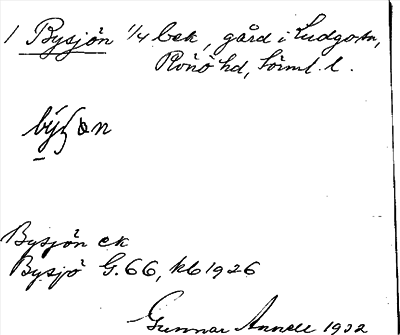 1 Bysjön 1/4 bek, gård i Ludgo sn,
Rönö hd, Sörml. l.
Bysjön ek
Bysjö G.66, kb 1926
Gunnar Annell 1932